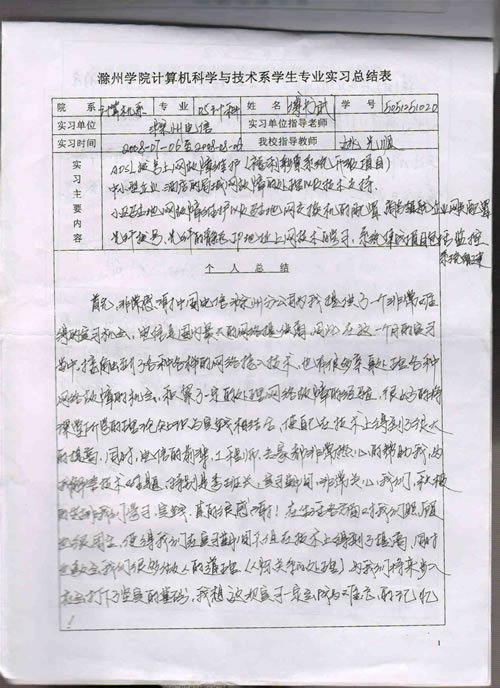 滁州学院计算机科学与技术系学生专业实习总结表
院 系 计算机系 专 业 05计科 姓 名 学 号 5051251020
实习单位 滁州电信 实习单位指导老师
实习时间 2008-07-06至2008-08-06 我校指导教师
实习主要内容
ADSL拨号上网故障维护
中小型企业、酒店的局域网故障的处理以及技术支持.
小区驻地网故障维护以及驻地网交换机的配置
光纤拨号,光纤的静态IP地址上网技术的学习,系统集成项目 监控
个 人 总 结
首先,非常感谢中国电信滁州分公司为我提供了一个非常难
得的实习机会,电信是国内最大的网络提供商,因此在这一个月的实习
当中,接触到了各种各样的网络接入技术,也有很多亲自处理各种
网络故障的机会,积累了一定的处理网络故障的经验,很好的将
课堂所学的理论知识与实践相结合,使自己在技术上得到了很大
的提高,同时,电信的前辈,工程师,大家都非常热心的帮助我,为
我解答技术难题,特别是李班长,实习期间,非常关心我们,积极
的 我们学习,实践,真的很感谢!在生活各方面对我们照顾
也很周全,使得我们在实习期间不但在技术上得到了提高,同时
也教会我们很多做人的道理(人际关系的处理)为我们将来步入
社会打下坚实的基础,我想这次实习一定会成为难忘的记忆
!
1